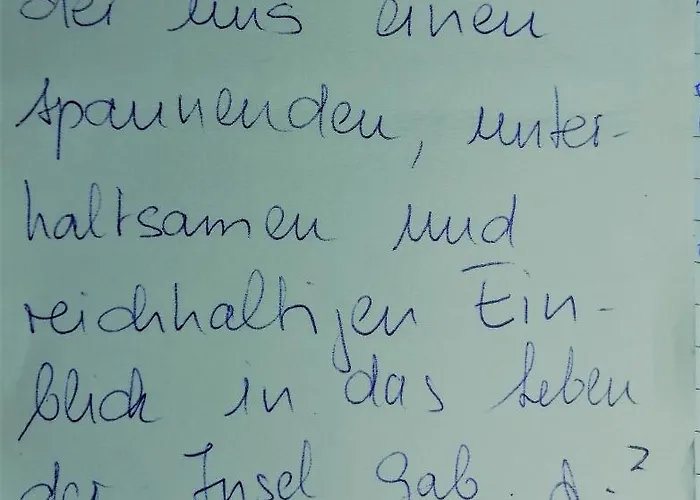 der uns einen
spannenden, unter-
haltsamen und
reichhaltigen Ein-
blick in das Leben
der Insel gab